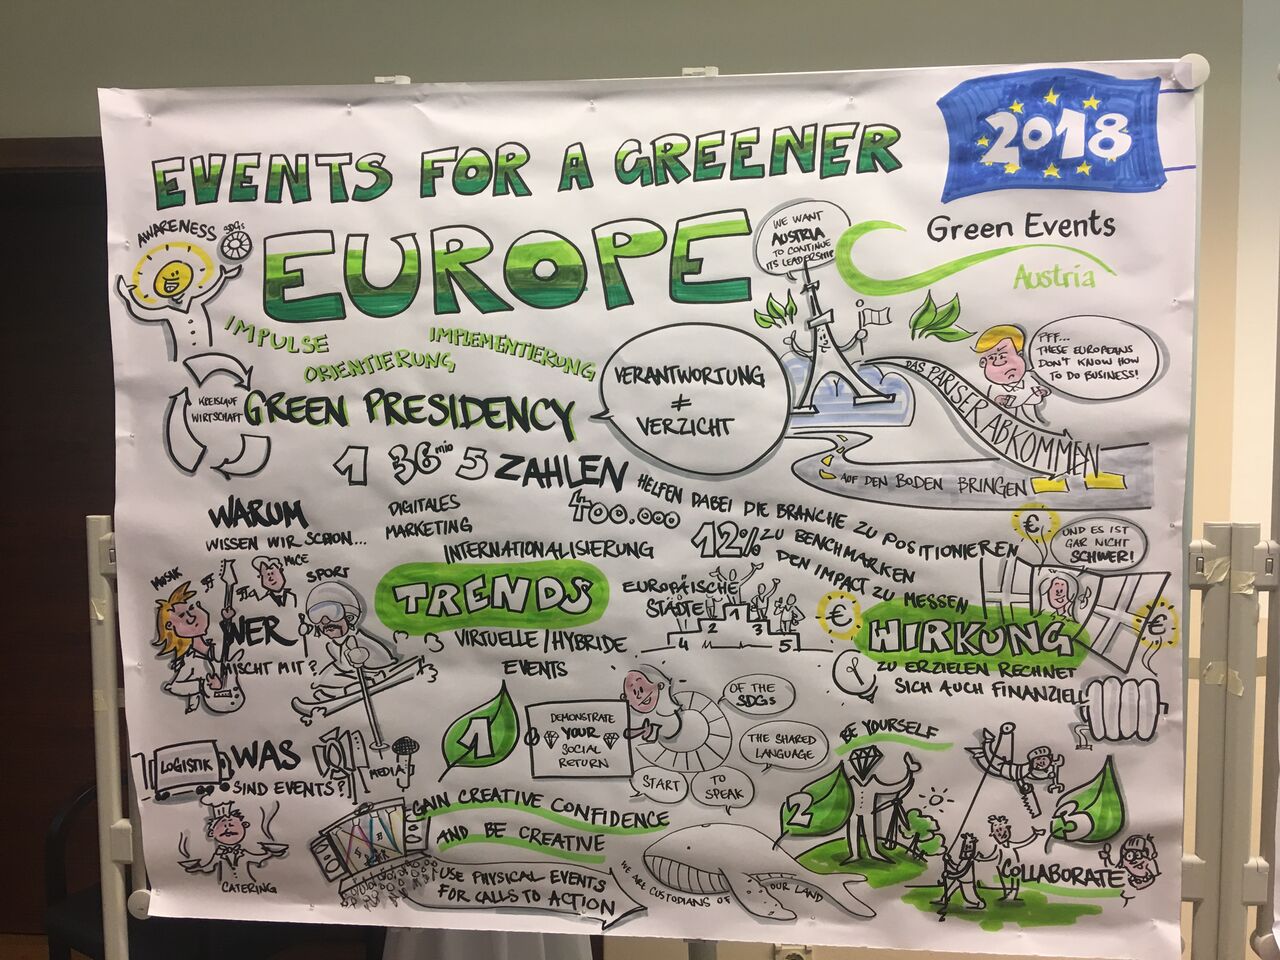 EVENTS FOR A GREENER
EUROPE
2018
Green Events
Austria
AWARENESS
SDGs
WE WANT
AUSTRIA
TO CONTINUE
ITS LEADERSHIP
IMPULSE
ORIENTIERUNG
IMPLEMENTIERUNG
KREISLAUF
WIRTSCHAFT
GREEN PRESIDENCY
VERANTWORTUNG
≠
VERZICHT
PFF...
THESE EUROPEANS
DON'T KNOW HOW
TO DO BUSINESS!
DAS PARISER ABKOMMEN
AUF DEN BODEN BRINGEN
1 36 mio 5 ZAHLEN
400.000
12%
HELFEN DABEI DIE BRANCHE ZU POSITIONIEREN
ZU BENCHMARKEN
DEN IMPACT ZU MESSEN
WARUM
WISSEN WIR SCHON...
DIGITALES
MARKETING
INTERNATIONALISIERUNG
TRENDS
VIRTUELLE/HYBRIDE
EVENTS
EUROPÄISCHE
STÄDTE
4 2 1 3 5
€
UND ES IST
GAR NICHT
SCHWER!
€
€
WIRKUNG
ZU ERZIELEN RECHNET
SICH AUCH FINANZIELL
MUSIK
MICE
SPORT
WER
MISCHT MIT?
LOGISTIK
WAS
SIND EVENTS?
MEDIA
CATERING
1
DEMONSTRATE
YOUR
SOCIAL
RETURN
START
TO
SPEAK
THE SHARED
LANGUAGE
OF THE
SDGs
GAIN CREATIVE CONFIDENCE
AND BE CREATIVE
USE PHYSICAL EVENTS
FOR CALLS TO ACTION
WE ARE CUSTODIANS OF OUR LAND
2
BE YOURSELF
3
COLLABORATE